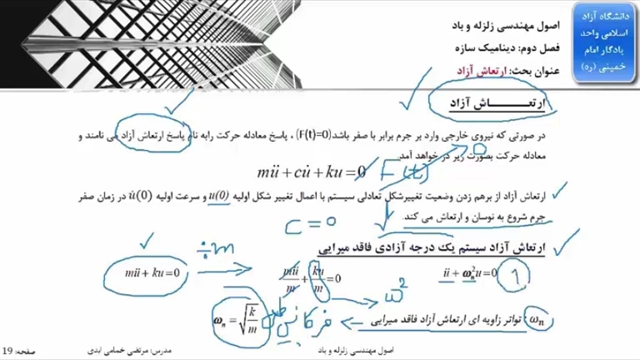 دانشگاه آزاد
اسلامی واحد
یادگار امام
خمینی (ره)
اصول مهندسی زلزله و باد
فصل دوم: دینامیک سازه
عنوان بحث: ارتعاش آزاد
ارتعـــــاش آزاد
در صورتی که نیروی خارجی وارد بر جرم برابر با صفر باشد (F(t)=0) ، پاسخ معادله حرکت رابه نام پاسخ ارتعاش آزاد می نامند و
معادله حرکت بصورت زیر در خواهد آمد
mü + cu̇ + ku = 0 F(t) 0
ارتعاش آزاد از برهم زدن وضعیت تغییرشکل تعادلی سیستم با اعمال تغییر شکل اولیه u(0) و سرعت اولیه u̇(0) در زمان صفر
جرم شروع به نوسان و ارتعاش می کند.
c = 0
ارتعاش آزاد سیستم یک درجه آزادی فاقد میرایی
mü + ku = 0 ÷m mü/m + ku/m = 0 ü + ωn²u = 0 1
ω²
ωn : تواتر زاویه ای ارتعاش آزاد فاقد میرایی فرکانس ωn = √(k/m)
اصول مهندسی زلزله و باد
مدرس: مرتضی خمامی ابدی
صفحه: 19